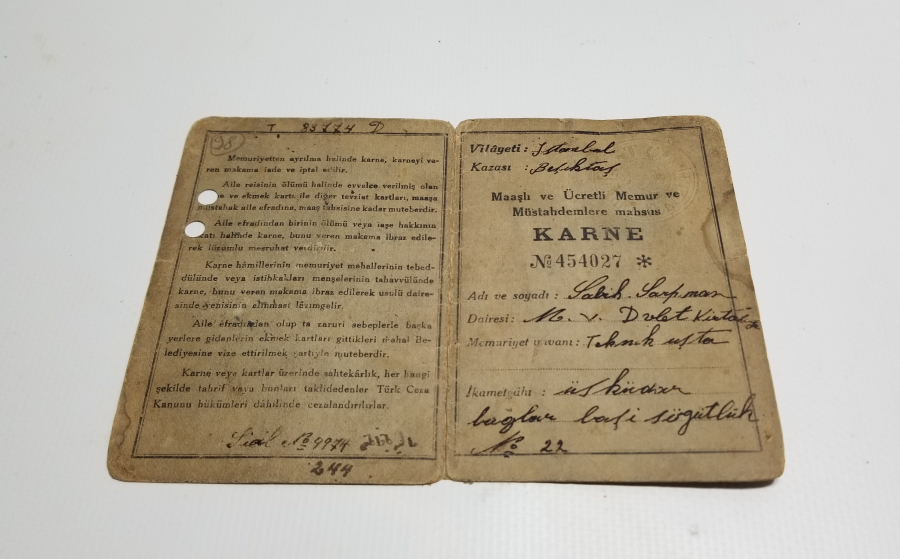 T 83774 D
38
Memuriyetten ayrılma halinde karne, karneyi ve-
ren makama iade ve iptal edilir.
Aile reisinin ölümü halinde evvelce verilmiş olan
ve ekmek kartı ile diğer tevziat kartları, maaşa
müstahak aile efradına, maaş tahsisine kadar muteberdir.
Aile efradından birinin ölümü veya iaşe hakkının
halinde karne, bunu veren makama ibraz edile-
rek lüzumlu meşruhat verdirilir.
Karne hâmillerinin memuriyet mahallerinin tebed-
dülünde veya istihkakları menşelerinin tahavvülünde
karne, bunu veren makama ibraz edilerek usulü daire-
sinde yenisinin alınması lâzımgelir.
Aile efradından olup ta zaruri sebeplerle başka
yerlere gidenlerin ekmek kartları gittikleri mahal Be-
lediyesine vize ettirilmek şartiyle muteberdir.
Karne veya kartlar üzerinde sahtekârlık, her hangi
şekilde tahrif veya bunları taklidedenler Türk Ceza
Kanunu hükümleri dâhilinde cezalandırılırlar.
Sicil No 9974
244
Vilâyeti : İstanbul
Kazası : Beşiktaş
Maaşlı ve Ücretli Memur ve
Müstahdemlere mahsus
KARNE
No 454027 *
Adı ve soyadı : Sabih Sarpman
Dairesi : M. V. Dvlet
Memuriyet unvanı : Teknik usta
İkametgâhı : üsküdar
bağlar başi söğütlük
No 22